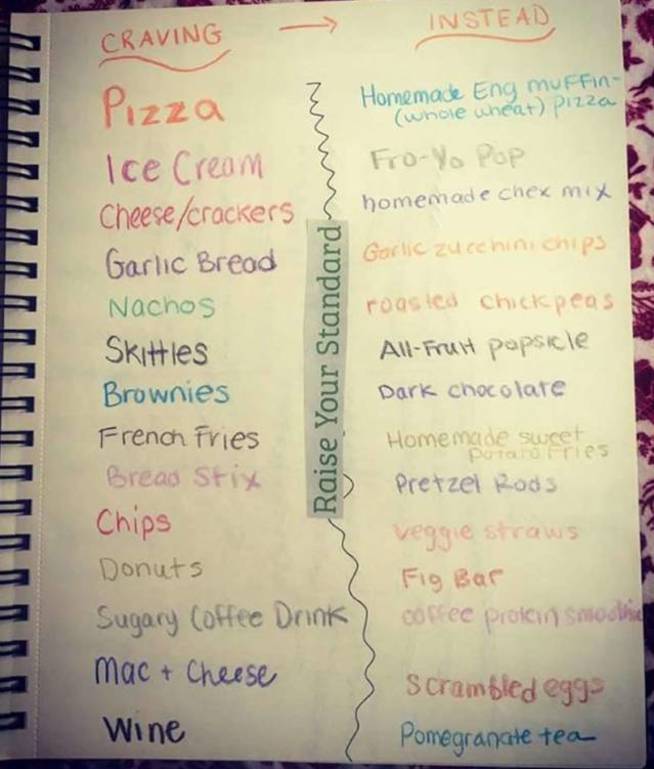 CRAVING → INSTEAD
Pizza Homemade Eng muffin-
(whole wheat) pizza
Ice Cream Fro-Yo Pop
Cheese/crackers homemade chex mix
Garlic Bread Garlic zucchini chips
Nachos roasted chickpeas
Skittles All-Fruit popsicle
Brownies Dark chocolate
French Fries Homemade sweet
potato fries
Bread Stix Pretzel Rods
Chips veggie straws
Donuts Fig Bar
Sugary Coffee Drink coffee protein smoothie
Mac + Cheese Scrambled eggs
Wine Pomegranate tea
Raise Your Standard